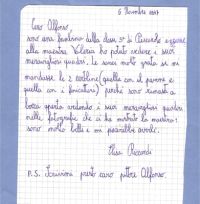 6 Dicembre 1997
Caro Alfonso,
sono una bambina della classe 5ª di Riccardo e grazie
alla maestra Valeria ho potuto vedere i suoi
meravigliosi quadri. Le sarei molto grata se mi
mandasse le 2 cartoline (quella con il pavone e
quella con i fenicotteri) perché sono rimasta a
bocca aperta vedendo i suoi meravigliosi quadri
nelle fotografie che ci ha mostrato la maestra:
sono molto belli e mi piacerebbe averli.
Elisa Riccardi
P.S. Scrivimi presto caro pittore Alfonso.